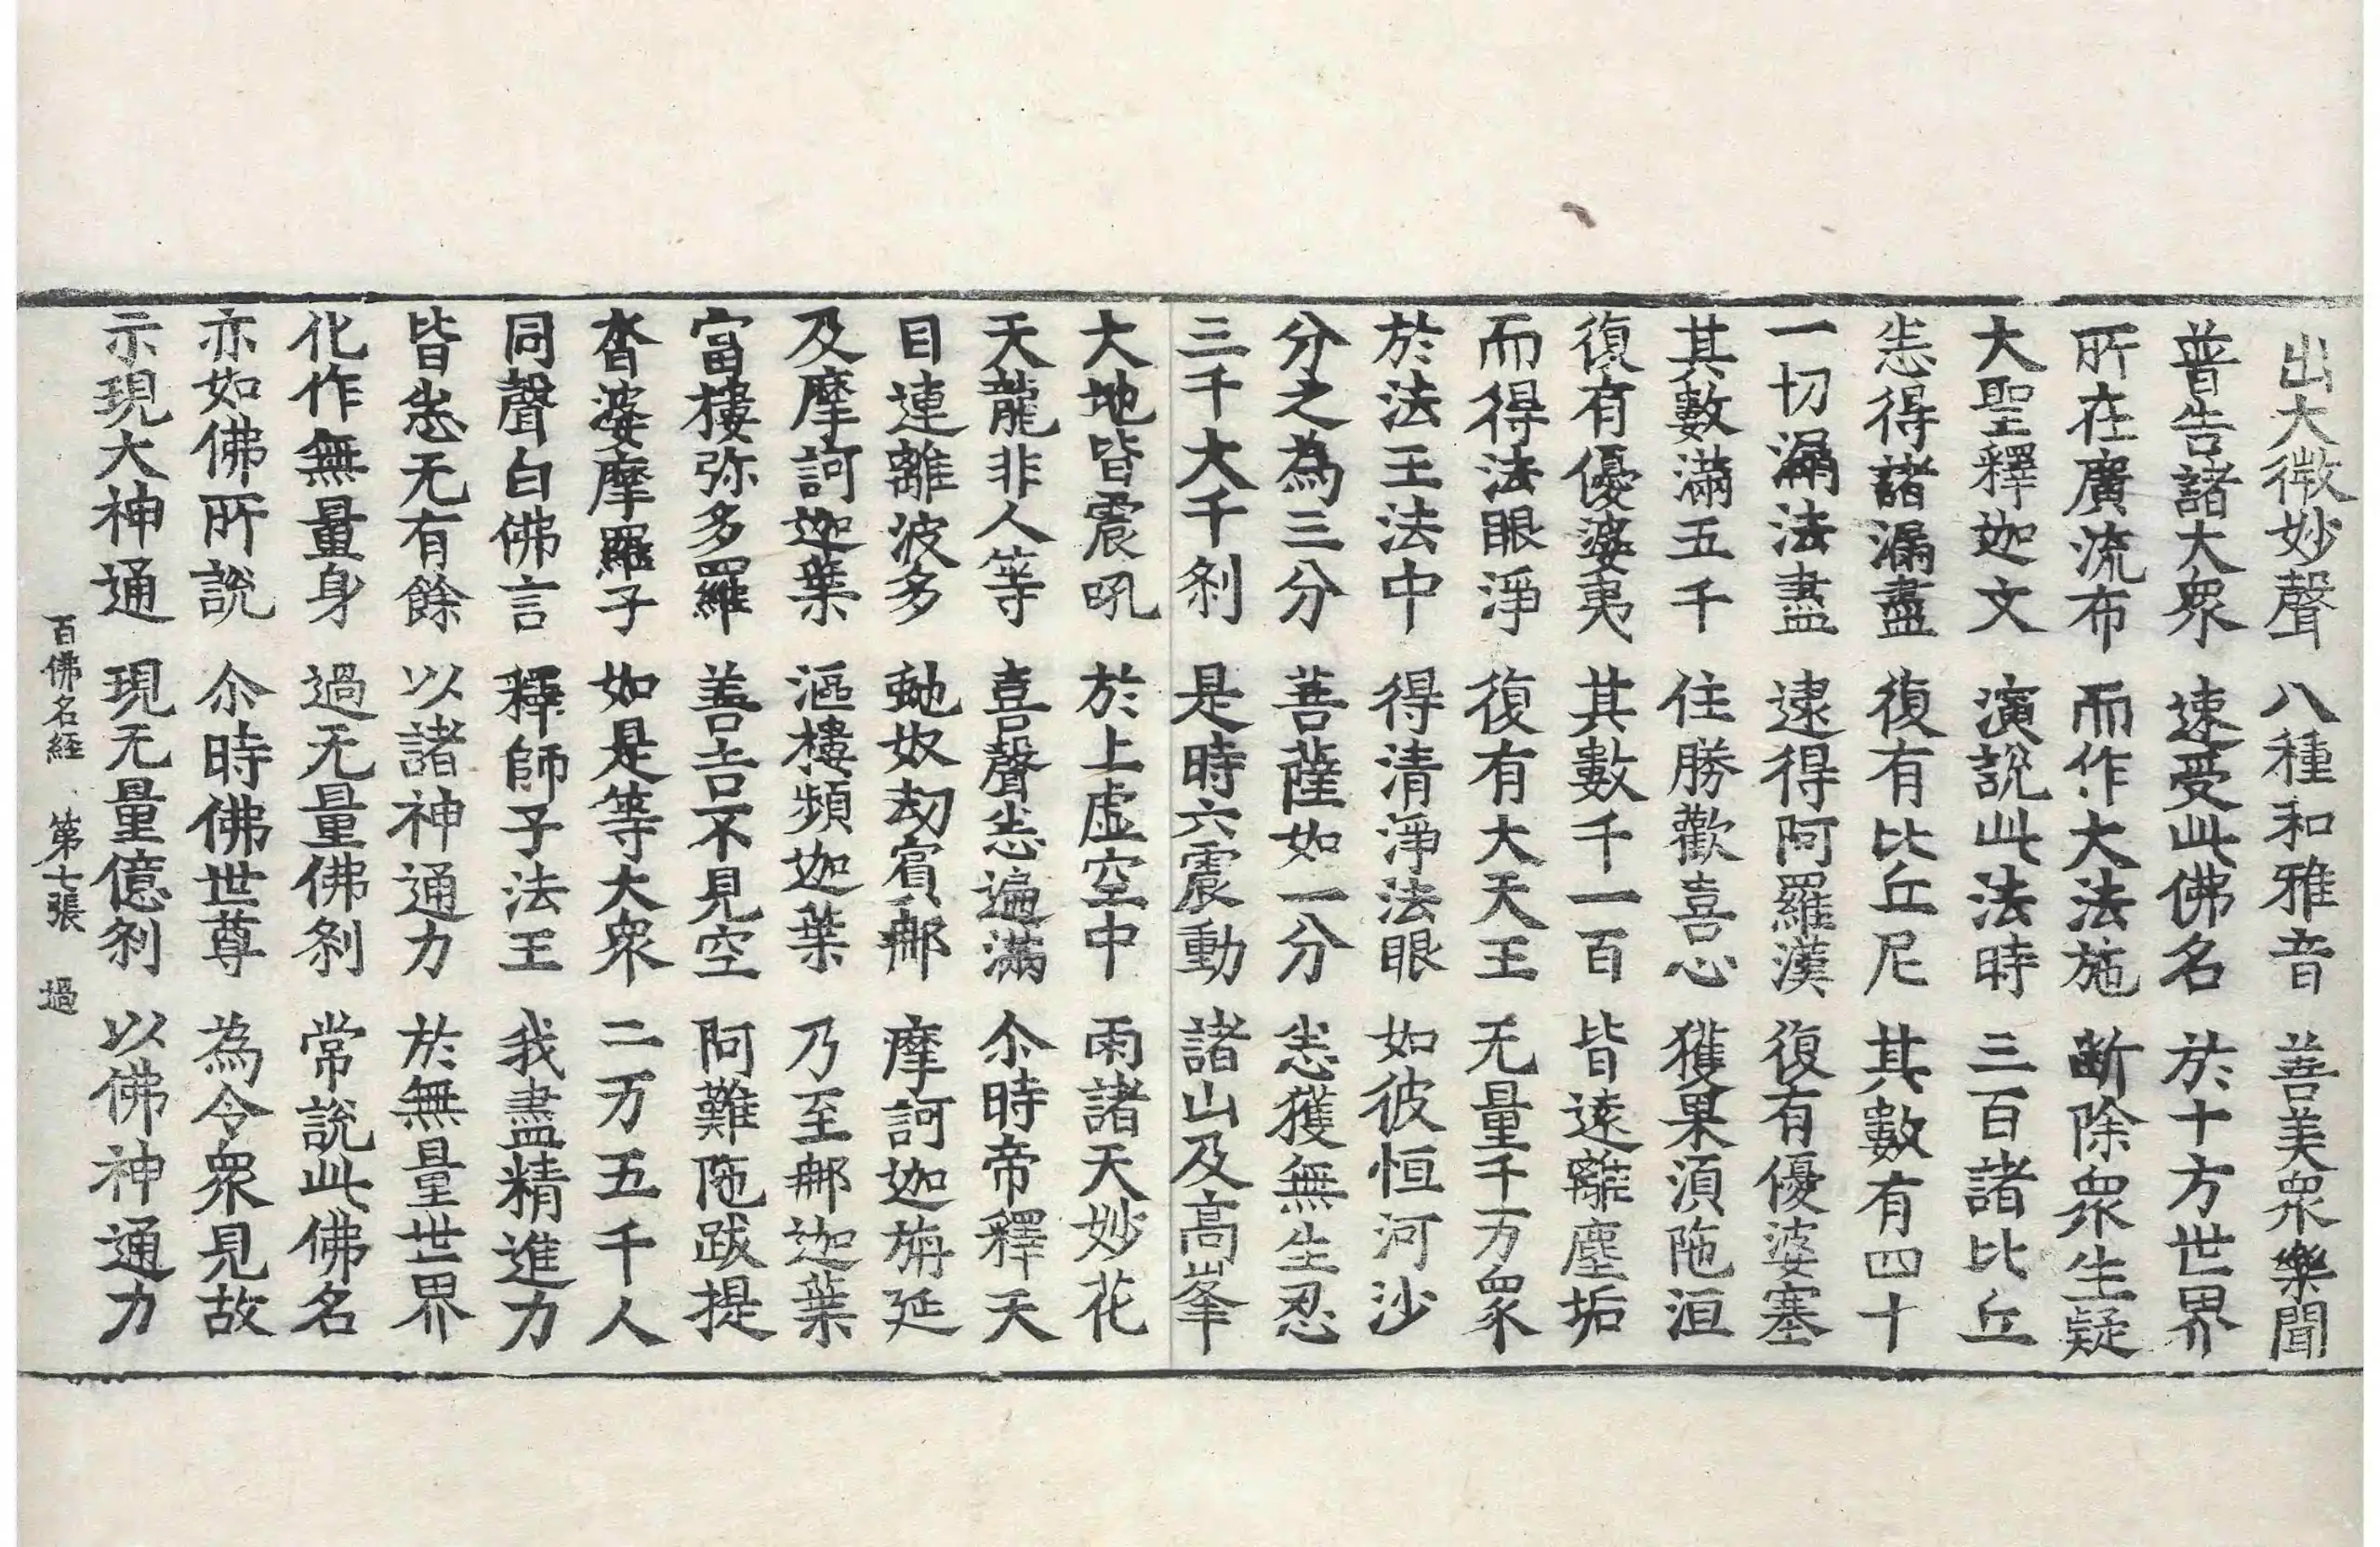 出大微妙聲 八種和雅音 善美衆樂聞
普告諸大衆 速受此佛名 於十方世界
所在廣流布 而作大法施 断除衆生疑
大聖釋迦文 演說此法時 三百諸比丘
悉得諸漏盡 復有比丘尼 其數有四十
一切漏法盡 逮得阿羅漢 復有優婆塞
其數滿五千 住勝歡喜心 獲果湏陁洹
復有優婆夷 其數千一百 皆遠離塵垢
而得法眼淨 復有大天王 无量千万衆
於法王法中 得清淨法眼 如彼恒河沙
分之為三分 菩薩如一分 悉獲無生忍
三千大千刹 是時六震動 諸山及高峯
大地皆震吼 於上虛空中 雨諸天妙花
天龍非人等 喜聲悉遍滿 尒時帝釋天
目連離波多 虵奴劫賓𨚗 摩訶迦旃延
及摩訶迦葉 漚樓頻迦葉 乃至𨚗迦葉
富樓弥多羅 善吉不見空 阿難陁跋提
沓婆摩羅子 如是等大衆 二万五千人
同聲白佛言 釋師子法王 我盡精進力
皆悉无有餘 以諸神通力 於無量世界
化作無量身 過无量佛刹 常說此佛名
亦如佛所說 尒時佛世尊 為令衆見故
示現大神通 現无量億刹 以佛神通力
百佛名経 第七張 過